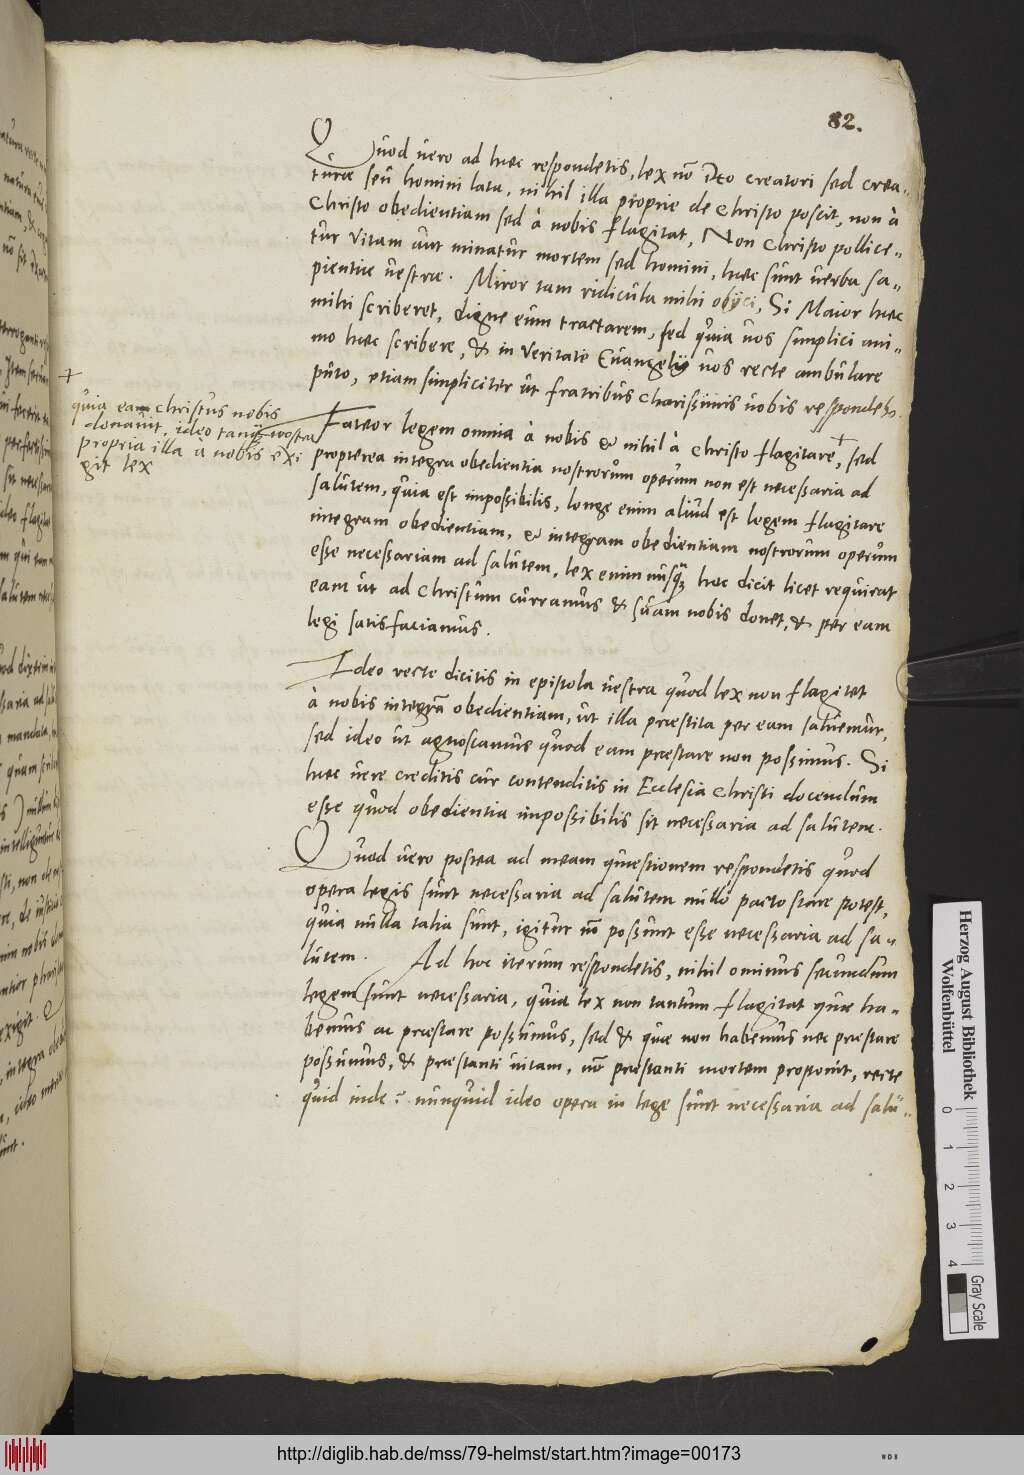 82.
Quod vero ad haec respondetis, lex nõ Deo creatori sed crea-
turae seu homini lata, nihil illa proprie de Christo poscit, non à
Christo obedientiam sed à nobis flagitat, Non Christo pollice-
tur vitam aut minatur mortem sed homini, haec sunt verba sa-
pientiae vestrae. Miror tam ridicula mihi obijci, Si Maior haec
mihi scriberet, digne eum tractarem, sed quia vos simplici ani-
mo haec scribere, & in veritate Euangelij vos recte ambulare
puto, etiam simpliciter ut fratribus charissimis vobis respondebo.
Fateor legem omnia à nobis & nihil à Christo flagitare, + sed
propterea integra obedientia nostrorum operum non est necessaria ad
salutem, quia est impossibilis, longe enim aliud est legem flagitare
integram obedientiam, & integram obedientiam nostrorum operum
esse necessariam ad salutem, lex enim nusq hoc dicit licet requirat
eam ut ad Christum curramus & suam nobis donet, & per eam
legi satisfaciamus.
+
quia eam christus nobis
donauit, ideo tanq nostra
propria illa a nobis exi
git lex
Ideo recte dicitis in epistola vestra quod lex non flagitet
à nobis integrã obedientiam, ut illa praestita per eam saluemur,
sed ideo ut agnoscamus quod eam praestare non possimus. Si
haec vere creditis cur contenditis in Ecclesia Christi docendum
esse quod obedientia impossibilis sit necessaria ad salutem.
Quod vero postea ad meam quaestionem respondetis quod
opera legis sunt necessaria ad salutem nullo pacto stare potest,
quia nulla talia sunt, igitur nõ possunt esse necessaria ad sa-
lutem. Ad hoc iterum respondetis, nihil ominus secundum
legem sunt necessaria, quia lex non tantum flagitat quae ha-
bemus ac praestare possumus, sed & quae non habemus nec praestare
possumus, & praestanti vitam, nõ praestanti mortem proponit, recte
quid inde? nunquid ideo opera in lege sunt necessaria ad salu-
Herzog August Bibliothek
Wolfenbüttel
0 1 2 3 4
Gray Scale
http://diglib.hab.de/mss/79-helmst/start.htm?image=00173